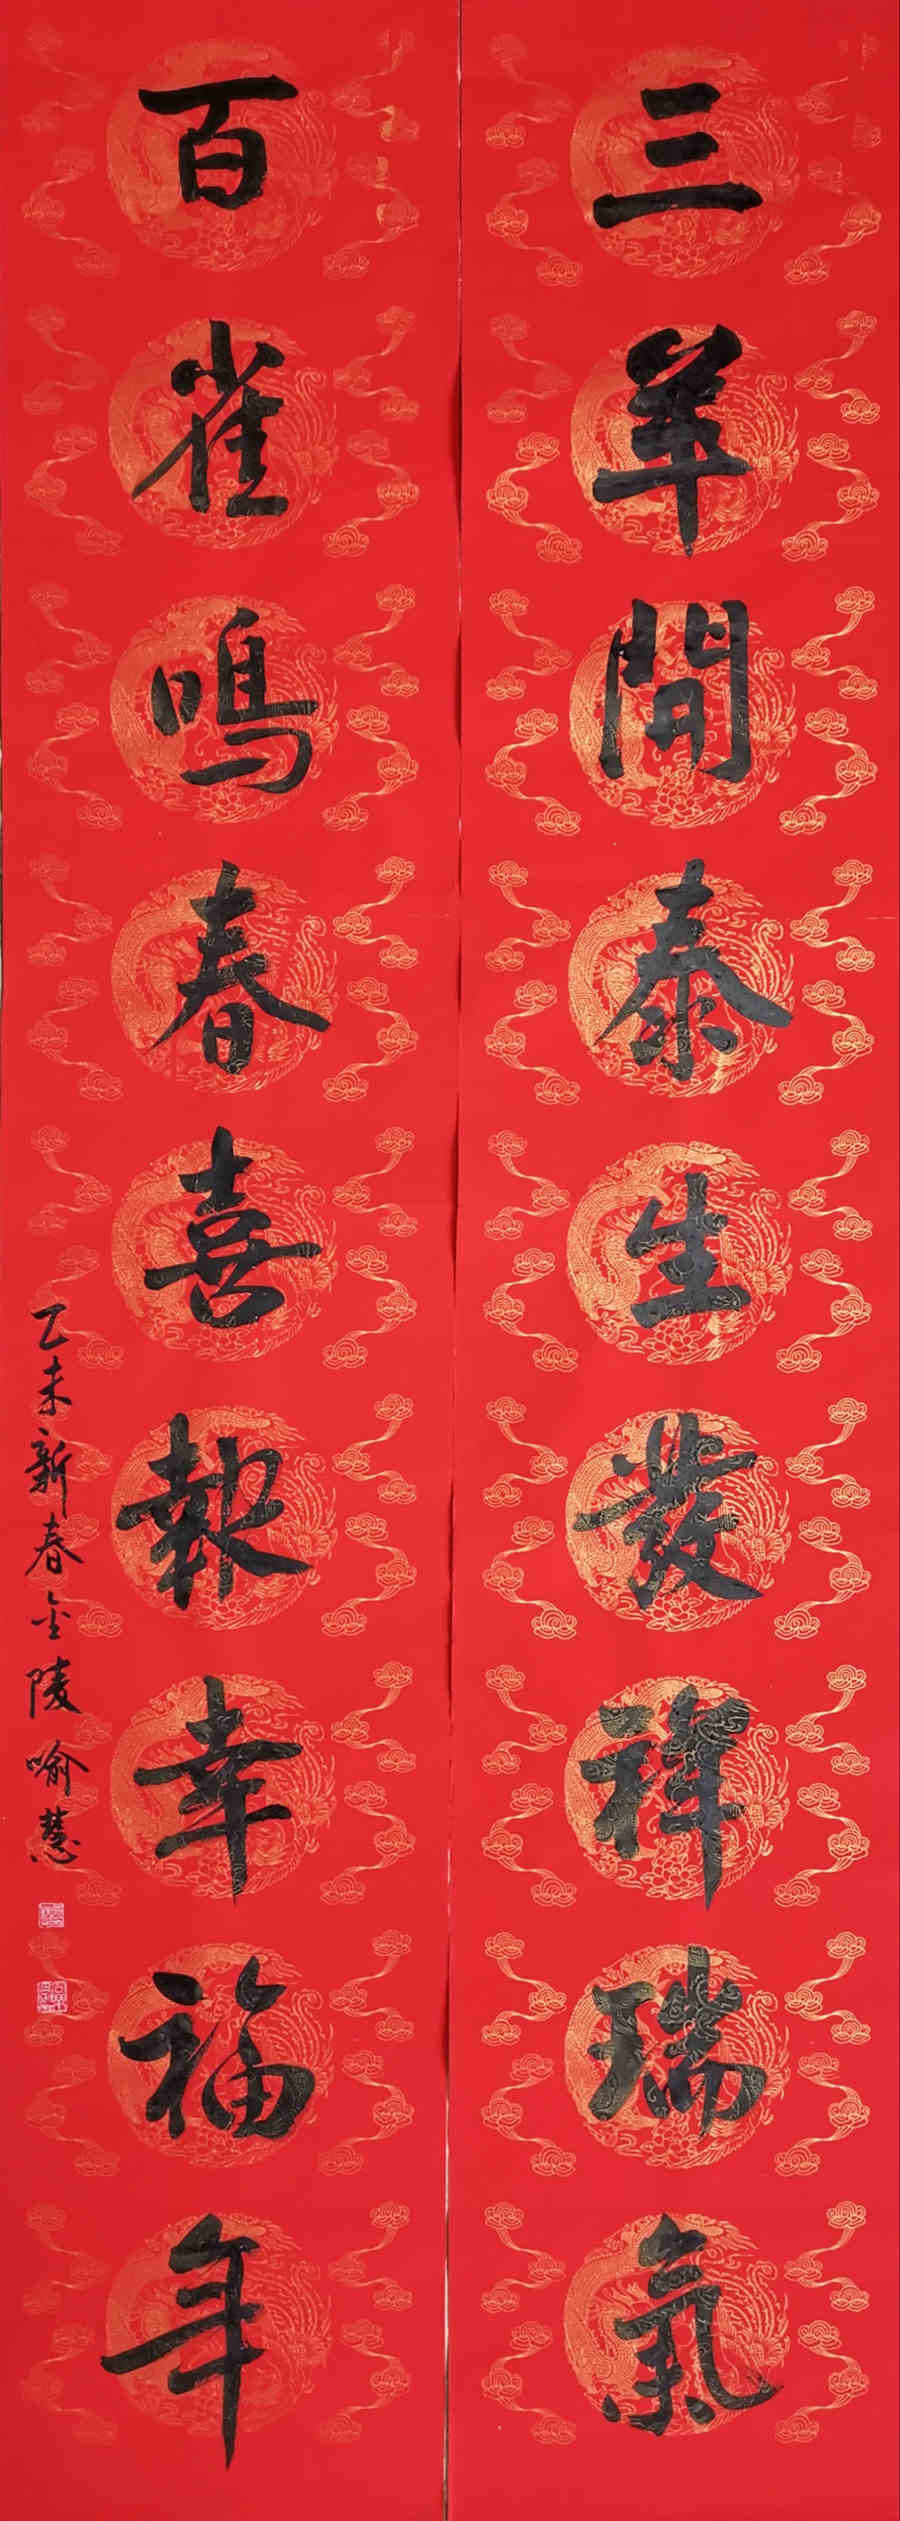 三羊開泰生發祥瑞氣
百雀鳴春喜報幸福年
乙未新春金陵喻慧